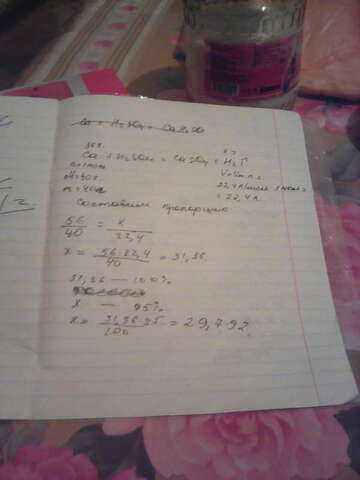 Ca + H₂SO₄ =
56г x л
Ca + H₂SO₄ = CaSO₄ + H₂↑
n=1моль V=Vm·n
M=40г 22,4 л/моль·1моль
m=40г = 22,4 л
Составим пропорцию
56/40 = x/22,4
x = 56·22,4/40 = 31,36
31,36 — 100%
x — 95%
x = 31,36·95/100 = 29,792